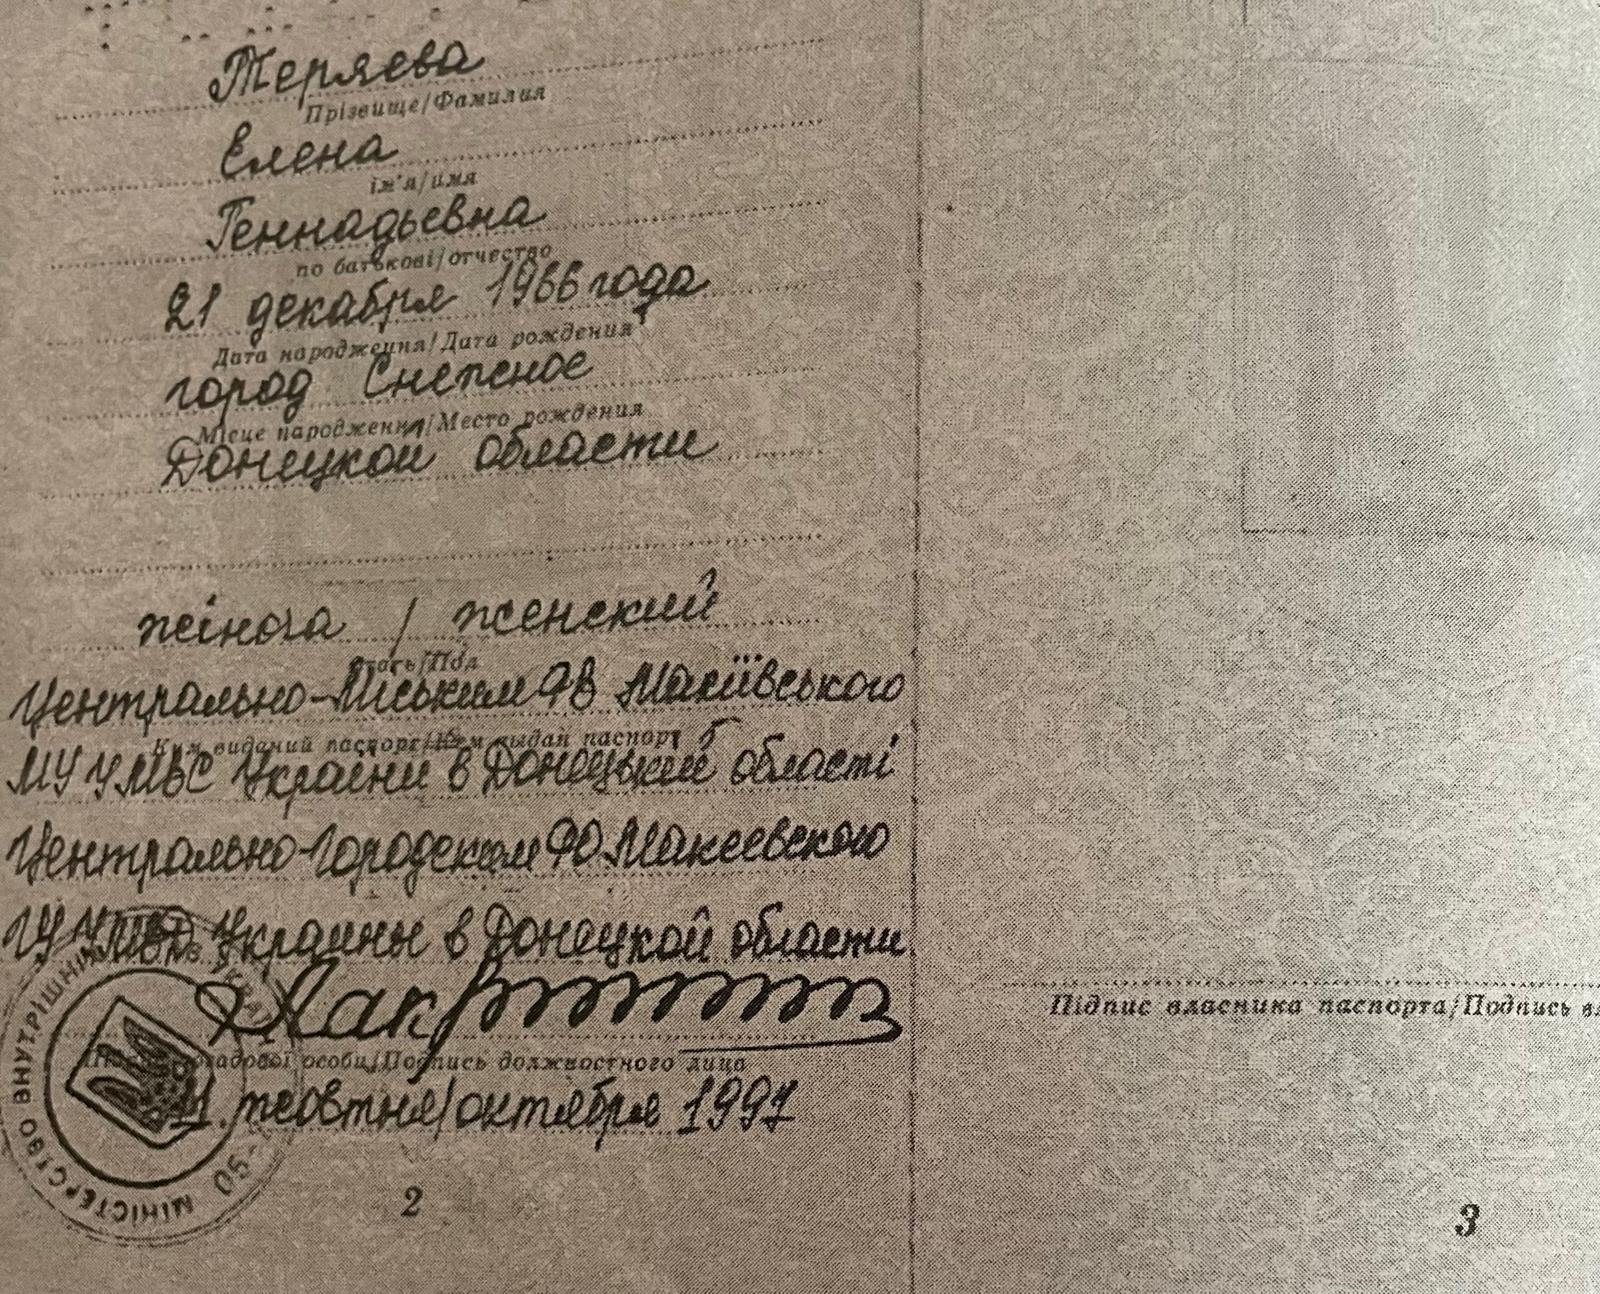 Теряева
Прізвище/Фамилия
Елена
ім'я/имя
Геннадьевна
по батькові/отчество
21 декабря 1966 года
Дата народження/Дата рождения
город Снежное
Місце народження/Место рождения
Донецкой области
жіноча / женский
стать/Пол
Центрально-Міським РВ Макіївського
Ким виданий паспорт/Кем выдан паспорт
МУ УМВС України в Донецькій області
Центрально-Городским РО Макеевского
ГУ УМВД Украины в Донецкой области
посадової особи/Подпись должностного лица
жовтня/октября 1997
МІНІСТЕРСТВО ВНУТРІШНІХ
2
Підпис власника паспорта/Подпись
3